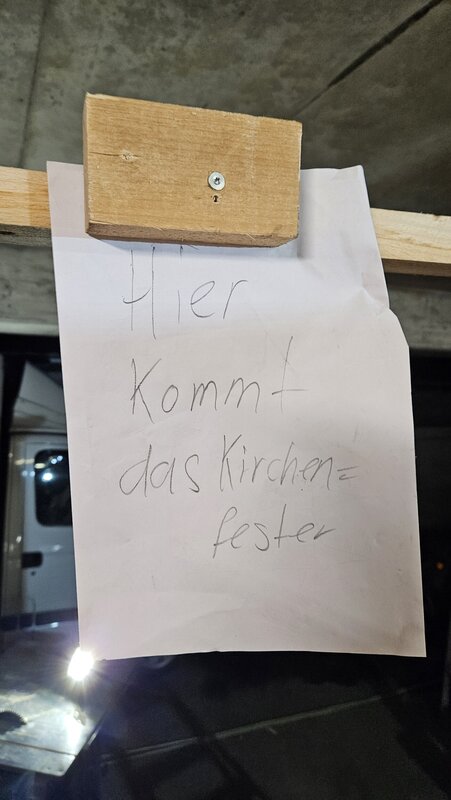 Hier
Kommt
das Kirchen=
fester